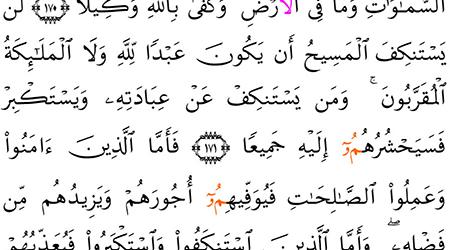 السَّمَٰوَٰتِ وَمَا فِى الۡأَرۡضِ وَكَفَىٰ بِاللَّهِ وَكِيلًا ۝١٧٠ لَّن
يَسۡتَنكِفَ الۡمَسِيحُ أَن يَكُونَ عَبۡدًا لِّلَّهِ وَلَا الۡمَلَٰٓئِكَةُ
الۡمُقَرَّبُونَ ۚ وَمَن يَسۡتَنكِفۡ عَنۡ عِبَادَتِهِۦ وَيَسۡتَكۡبِرۡ
فَسَيَحۡشُرُهُمُۥٓ إِلَيۡهِ جَمِيعًا ۝١٧١ فَأَمَّا الَّذِينَ ءَامَنُواْ
وَعَمِلُواْ الصَّٰلِحَٰتِ فَيُوَفِّيهِمُۥٓ أُجُورَهُمۡ وَيَزِيدُهُم مِّن
فَضۡلِهِۦۖ وَأَمَّا الَّذِينَ اسۡتَنكَفُواْ وَاسۡتَكۡبَرُواْ فَيُعَذِّبُهُمۡ